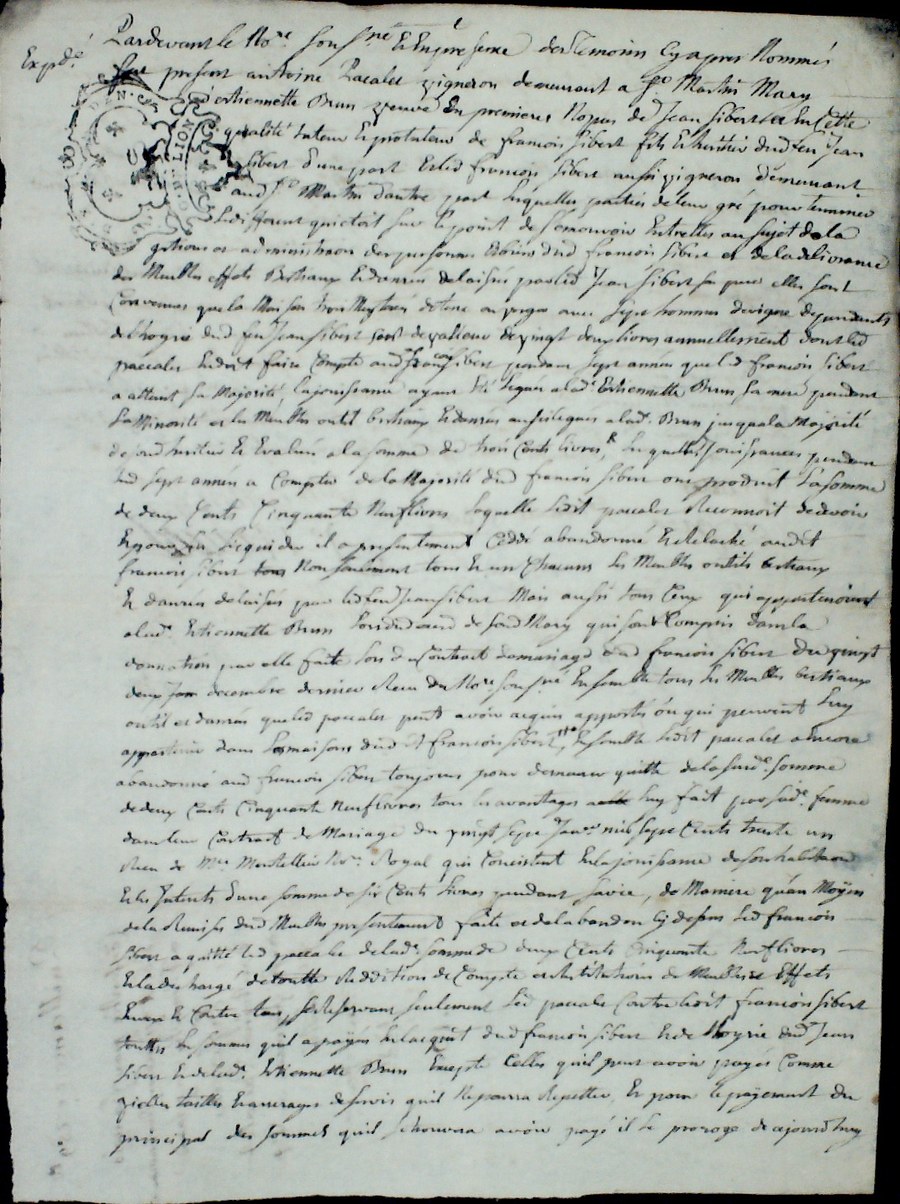 Expdé
Pardevant le No.re sous.né Et En presence des Temoins Cy apres Nommés
fut present antoine Pacalet vigneron demeurant a St Martin Mary
d'estiennette Brun veuve En premieres Nopces de Jean Sibert En Cette
GEN. DE LION
qualité tuteur Et protuteur de francois Sibert fils Et heritier dud feu Jean
Sibert d'une part Et led francois Sibert aussi vigneron demeurant
aud St Martin d'autre part lesquelles parties de leur gré pour terminer
le different qui etoit sur le point de s'emouvoir Entrelles au sujet de la
gestion et administraon des personnes Et biens dud francois Sibert et de la delivrance
des Meubles effets Bestiaux Et danrés delaissés par led Jean Sibert son pere elles sont
Convenues que la Maison trois de terre ou verger avec sept hommes de vigne dependants
de l'hoyrie dud feu Jean Sibert sont de valleur de vingt deux livres annuellement dont led
paccalet En doit faire Compte aud francois Sibert pendant sept années que led francois Sibert
a atteint sa Majorité, la jouissance ayant été leguée a lad. Estiennette Brun sa mere pendant
sa Minorité et les Meubles outil bestiaux Et danrés aussi legués a lad. Brun jusqua la Majorité
de sond heritier Et Evalués a la somme de trois Cents livres, lesquelles Jouissances pendant
led sept années a Compter de la Majorité dud francois Sibert ont produit la somme
de deux Cents Cinquante Neuf livres laquelle ledit paccalet Reconnoit devoir
Et pour sa liquider il a presentement Ceddé abandonné Et relaché audit
francois Sibert Non seulement tous Et un Chacuns les Meubles outils bestiaux
Et danrés delaissés par led feu Jean Sibert Mais aussi tous Ceux qui appartenoient
a lad. Estiennette Brun de sond Mary qui sont Compris dans la
donnation par elle faite lors du Contract de mariage dud francois Sibert du vingt
deux decembre dernier Receu du No.re sous.né Ensemble tous les Meubles bestiaux
outil et danrés que led paccalet peut avoir acquis apportés ou qui peuvent luy
appartenir dans les maisons dud francois Sibert, Ensemble ledit paccalet a Encore
abandonné aud francois Sibert toujours pour demeurer quitte de la susd. somme
de deux Cents Cinquante Neuf livres tous les avantages a luy fait par sad. femme
dans leur Contract de Mariage du vingt sept Janv.er mil sept Cents trente un
Receu de M.re No.re Royal qui Consistent En la jouissance de son habitaon
Et les Interets d'une somme de six Cents livres pendant sa vie, de Maniere qu'au Moyen
de la Remise dud Meubles presentement faite et de labandon Cy dessus led francois
Sibert a quitté led paccalet de lad. somme de deux Cents Cinquante Neuf livres
Et la decharge de toutte Reddition de Compte et Restitution de Meubles Effets
Envers Et Contre tous, se Reservant seulement led paccalet Contre ledit francois Sibert
touttes les sommes qu'il a payées En lacquit dud francois Sibert Et de lhoyrie dud Jean
Sibert Et de lad. Estiennette Brun Excepté Celles qu'il peut avoir payés Comme
vielles tailles Et arrerages de servis qu'il Ne pourra Repetter, Et pour le payement du
principal des sommes qu'il se trouvera avoir payé il le proroge de cejourd'huy